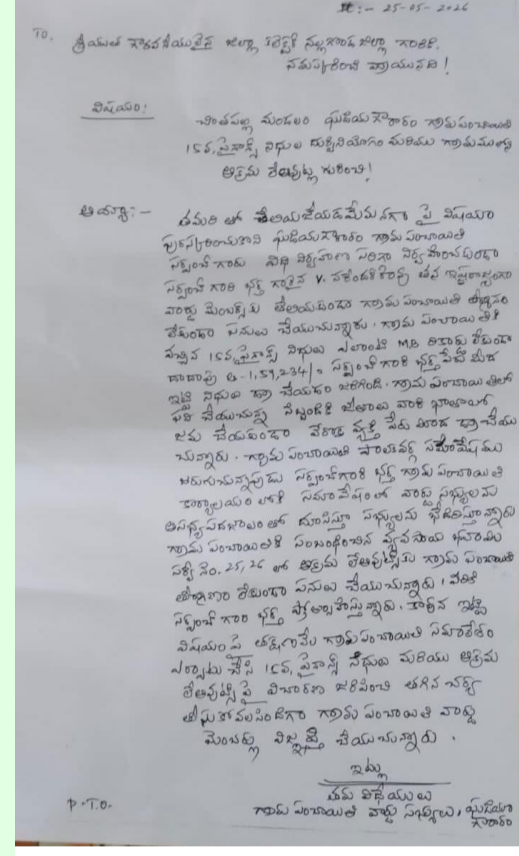 Dt:- 25-05-2026
To,
శ్రీయుత గౌరవనీయులైన జిల్లా కలెక్టర్ నల్లగొండ జిల్లా గారికి,
నమస్కరించి వ్రాయునది!
విషయం:
చింతపల్లి మండలం ఘడియగౌరారం గ్రామ పంచాయితి
15వ, ఫైనాన్స్ నిధుల దుర్వినియోగం మరియు గ్రామములో
అక్రమ లేఅవుట్ల గురించి!
అయ్యా:-
తమరి తో తెలియజేయడమేమనగా పై విషయం
పురస్కరించుకొని ఘడియగౌరారం గ్రామ పంచాయితి
సర్పంచ్ గారు విధి నిర్వహణ సరిగా నిర్వహించకుండా
సర్పంచ్ గారి భర్త గారైన V. తన ఇష్టారాజ్యంగా
వార్డు మెంబర్స్ కు తెలియకుండా గ్రామ పంచాయితి తీర్మానం
లేకుండా పనులు చేయుచున్నారు. గ్రామ పంచాయితికి
వచ్చిన 15వ, ఫైనాన్స్ నిధులు ఎలాంటి M.B రికార్డు లేకుండా
దాదాపు రూ-1,59,234/- సర్పంచ్ గారి భర్త పేరు మీద
ఇట్టి నిధులు డ్రా చేయడం జరిగింది. గ్రామ పంచాయితిలో
పని చేయుచున్న సిబ్బందికి జీతాలు వారి ఖాతాలో
జమ చేయకుండా వేరొక వ్యక్తి పేరు మీద డ్రా చేయు
చున్నారు. గ్రామ పంచాయితి పాలకవర్గ సమావేశము
జరుగుచున్నపుడు సర్పంచ్ గారి భర్త గ్రామ పంచాయితి
కార్యాలయం లోకి సమావేశంలో వార్డు సభ్యులను
అసభ్యపదజాలం తో దూషిస్తూ సభ్యులను బెదిరిస్తూన్నారు
గ్రామ పంచాయితికి సంబంధించిన వ్యవసాయ భూమి
సర్వే నెం. 25, 26 లో అక్రమ లేఅవుట్స్ కు గ్రామ పంచాయితి
తీర్మానం లేకుండా పనులు చేయుచున్నారు, వీరికి
సర్పంచ్ గారి భర్త ప్రోత్సహిస్తున్నారు. కావున ఇట్టి
విషయం పై తక్షణమే గ్రామ పంచాయితి సమావేశం
ఏర్పాటు చేసి 15వ, ఫైనాన్స్ నిధులు మరియు అక్రమ
లేఅవుట్స్ పై విచారణ జరిపించి తగిన చర్య
తీసుకోవలసిందిగా గ్రామ పంచాయితి వార్డు
మెంబర్లు విజ్ఞప్తి చేయుచున్నారు.
ఇట్లు
తమ విధేయులు
గ్రామ పంచాయితి వార్డు సభ్యులు, ఘడియా
గౌరారం
P.T.O.